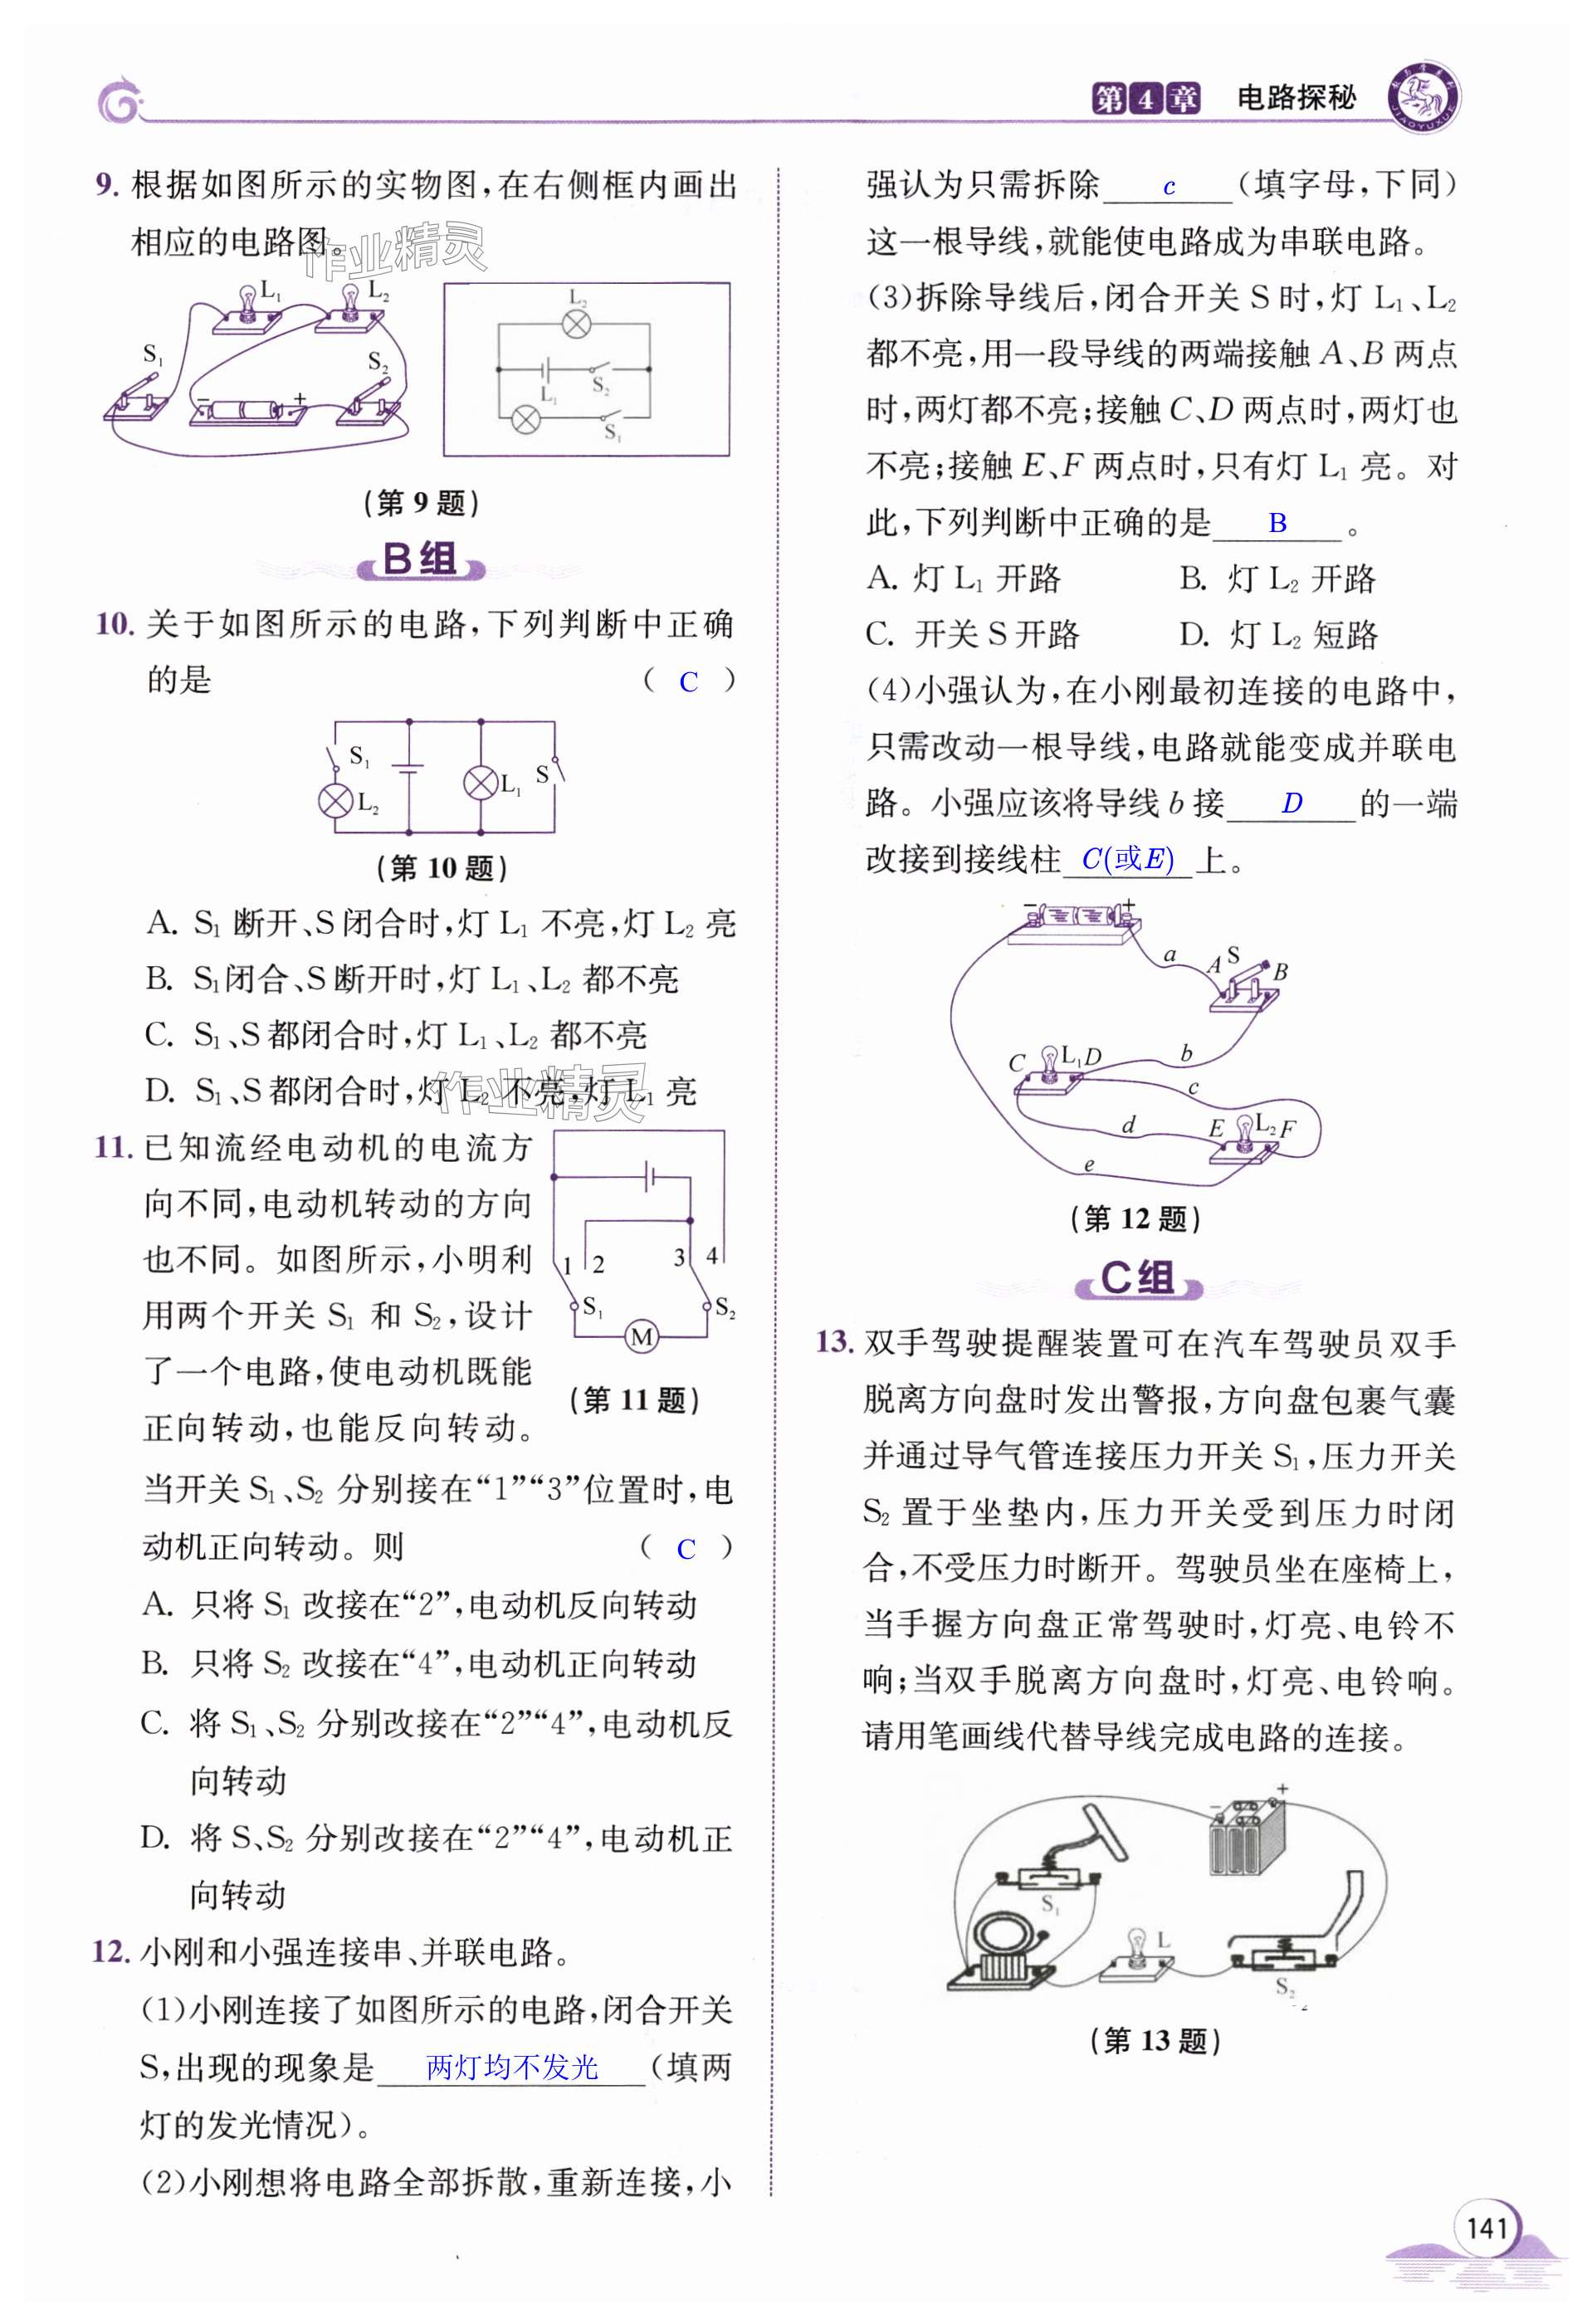 第4章 电路探秘
JIAOYUXUE
9. 根据如图所示的实物图,在右侧框内画出
相应的电路图。
作业精灵
L₁ L₂ S₁ S₂ − +
L₂ S₂ L₁ S₁
(第 9 题)
B组
10. 关于如图所示的电路,下列判断中正确
的是 ( C )
S₁ L₂ L₁ S
(第 10 题)
A. S₁ 断开、S闭合时,灯 L₁ 不亮,灯 L₂ 亮
B. S₁闭合、S断开时,灯 L₁、L₂ 都不亮
C. S₁、S都闭合时,灯 L₁、L₂ 都不亮
D. S₁、S都闭合时,灯 L₂ 不亮,灯 L₁ 亮
作业精灵
11. 已知流经电动机的电流方
向不同,电动机转动的方向
也不同。如图所示,小明利
用两个开关 S₁ 和 S₂,设计
了一个电路,使电动机既能
正向转动,也能反向转动。
1 2 3 4 S₁ S₂ M
(第 11 题)
当开关 S₁、S₂ 分别接在“1”“3”位置时,电
动机正向转动。则 ( C )
A. 只将 S₁ 改接在“2”,电动机反向转动
B. 只将 S₂ 改接在“4”,电动机正向转动
C. 将 S₁、S₂ 分别改接在“2”“4”,电动机反
向转动
D. 将 S、S₂ 分别改接在“2”“4”,电动机正
向转动
12. 小刚和小强连接串、并联电路。
(1)小刚连接了如图所示的电路,闭合开关
S,出现的现象是 两灯均不发光 (填两
灯的发光情况)。
(2)小刚想将电路全部拆散,重新连接,小
强认为只需拆除 c (填字母,下同)
这一根导线,就能使电路成为串联电路。
(3)拆除导线后,闭合开关 S 时,灯 L₁、L₂
都不亮,用一段导线的两端接触 A、B 两点
时,两灯都不亮;接触 C、D 两点时,两灯也
不亮;接触 E、F 两点时,只有灯 L₁ 亮。对
此,下列判断中正确的是 B 。
A. 灯 L₁ 开路 B. 灯 L₂ 开路
C. 开关 S 开路 D. 灯 L₂ 短路
(4)小强认为,在小刚最初连接的电路中,
只需改动一根导线,电路就能变成并联电
路。小强应该将导线 b 接 D 的一端
改接到接线柱 C(或E) 上。
− + a A S B C L₁ D b c d E L₂ F e
(第 12 题)
C组
13. 双手驾驶提醒装置可在汽车驾驶员双手
脱离方向盘时发出警报,方向盘包裹气囊
并通过导气管连接压力开关 S₁,压力开关
S₂ 置于坐垫内,压力开关受到压力时闭
合,不受压力时断开。驾驶员坐在座椅上,
当手握方向盘正常驾驶时,灯亮、电铃不
响;当双手脱离方向盘时,灯亮、电铃响。
请用笔画线代替导线完成电路的连接。
− + S₁ L S₂
(第 13 题)
141